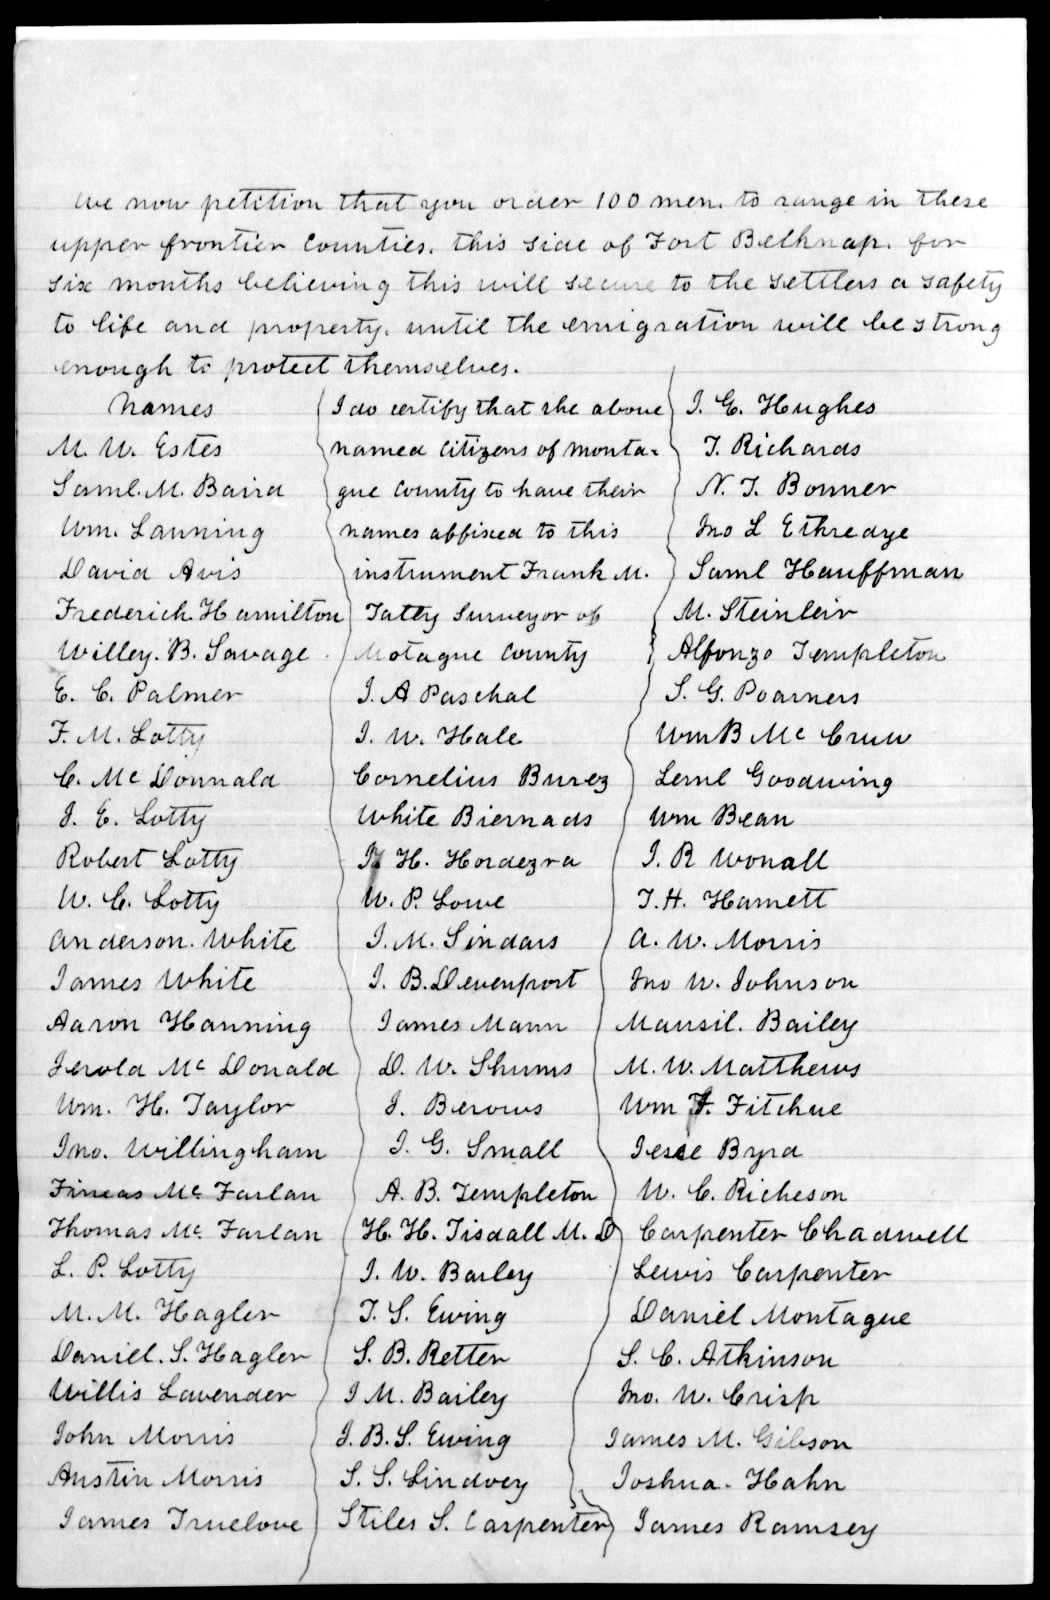 We now petition that you order 100 men. to range in these
upper frontier Counties. this side of Fort Belknap. for
six months believing this will secure to the settlers a safety
to life and property. until the emigration will be strong
enough to protect themselves.
Names
M. W. Estes
Saml. M. Baird
Wm. Lanning
David Avis
Frederich. Hamilton
Willey. B. Savage
E. C. Palmer
F. M. Lotty
C. Mc Donnald
J. E. Lotty
Robert Lotty
W. C. Lotty
Anderson. White
James White
Aaron Hanning
Jerold Mc Donald
Wm. H. Taylor
Jno. Willingham
Fineas Mc Farlan
Thomas Mc. Farlan
L. P. Lotty
M. M. Hagler
Daniel. S. Hagler
Willis Lavender
John Morris
Austin Morris
James Truelove
I do certify that the above
named Citizens of Monta-
gue County to have their
names affixed to this
instrument Frank M.
Tatty Surveyor of
Motague County
J. A Paschal
J. W. Hale
Cornelius Burez
White Biernads
J H. Hordezra
W. P. Lowe
J. M. Sindars
J. B. Devenport
James Mann
D. W. Shums
J. Berows
J. G. Small
A. B. Templeton
H. H. Tisdall M. D
J. W. Barley
T. S. Ewing
S. B. Retter
J M. Bailey
J. B. S. Ewing
S. S. Lindvey
Stiles S. Carpenter
J. E. Hughes
T. Richards
N. T. Bonner
Jno L Ethredge
Saml Hauffman
M. Steinleir
Alfonzo Templeton
S. G. Poarners
Wm B Mc Cruw
Leml Goodwing
Wm Bean
J. R Wonall
T. H. Harnett
A. W. Morris
Jno W. Johnson
Mansil. Bailey
M. W. Matthews
Wm F. Fitchue
Jesse Byrd
W. C. Richeson
Carpenter Chadwell
Lewis Carpenter
Daniel Montague
S. C. Atkinson
Jno. W. Crisp
James M. Gibson
Joshua. Hahn
James Ramsey